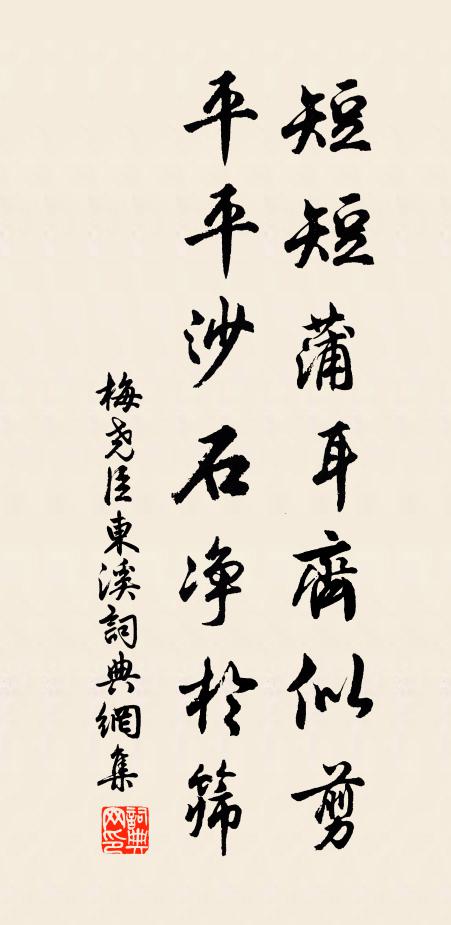 短短蒲耳齊似剪
平平沙石净於篩
梅尧臣東溪詞典網集
詞典网印